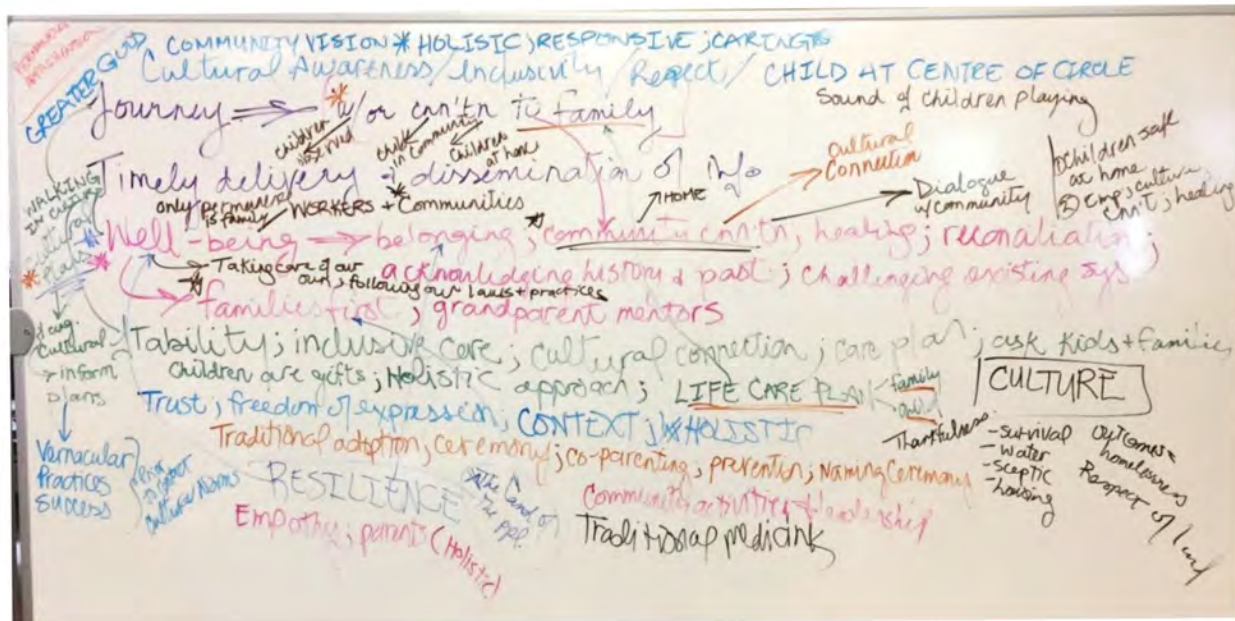 GREATER GOOD
COMMUNITY VISION * HOLISTIC; RESPONSIVE; CARING
Cultural Awareness/Inclusivity/Respect/ CHILD AT CENTRE OF CIRCLE
Journey w/or cnn'tn to family
Sound of children playing
children
child in community
children at home
Timely delivery & dissemination of info
Cultural Connection
Dialogue w/community
① Children safe at home
② Emp; culture cnn't; healing
only permanent is family
WORKERS + Communities
HOME
WALKING IN
cultural plans
Well-being belonging; community cnn'tn; healing; reconciliation;
Taking care of our own; following our laws + practices
acknowledging history & past; challenging existing sys
families first; grandparent mentors
Cultural
inform
plans
Tability; inclusive care; cultural connection; care plan; ask kids + families
Children are gifts; Holistic approach; LIFE CARE PLAN
family
child
CULTURE
Trust; freedom of expression; CONTEXT; HOLISTIC
Thankfulness
- survival
- water
- sceptic
- housing
outcomes
homelessness
Respect of land
Traditional adoption; ceremony; co-parenting; prevention; Naming Ceremony
Vernacular
Practices
Success
Cultural Norms
RESILIENCE
The Land
Community activities & leadership
Empathy; parents (Holistic)
Traditional medicine